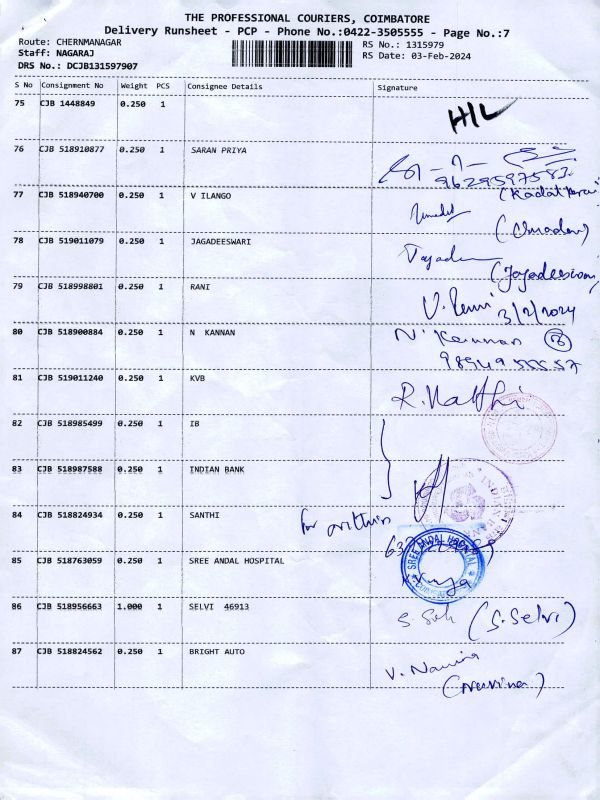 THE PROFESSIONAL COURIERS, COIMBATORE
Delivery Runsheet - PCP - Phone No.:0422-3505555 - Page No.:7
Route: CHERNMANAGAR
RS No.: 1315979
Staff: NAGARAJ
RS Date: 03-Feb-2024
DRS No.: DCJB131597907
S No Consignment No Weight PCS Consignee Details Signature
75 CJB 1448849 0.250 1
H/L
76 CJB 518910877 0.250 1 SARAN PRIYA
9629597583
77 CJB 518940700 0.250 1 V ILANGO
(Umadev)
78 CJB 519011079 0.250 1 JAGADEESWARI
(Jagadeeswari
79 CJB 518998801 0.250 1 RANI
V. Rani 3/2/2024
80 CJB 518900884 0.250 1 N KANNAN
N. Kannan
9894955557
81 CJB 519011240 0.250 1 KVB
82 CJB 518985499 0.250 1 IB
83 CJB 518987588 0.250 1 INDIAN BANK
84 CJB 518824934 0.250 1 SANTHI
for
85 CJB 518763059 0.250 1 SREE ANDAL HOSPITAL
SREE ANDAL HOSPITAL
86 CJB 518956663 1.000 1 SELVI 46913
(S.Selvi)
87 CJB 518824562 0.250 1 BRIGHT AUTO
V. Navina
(Navina)